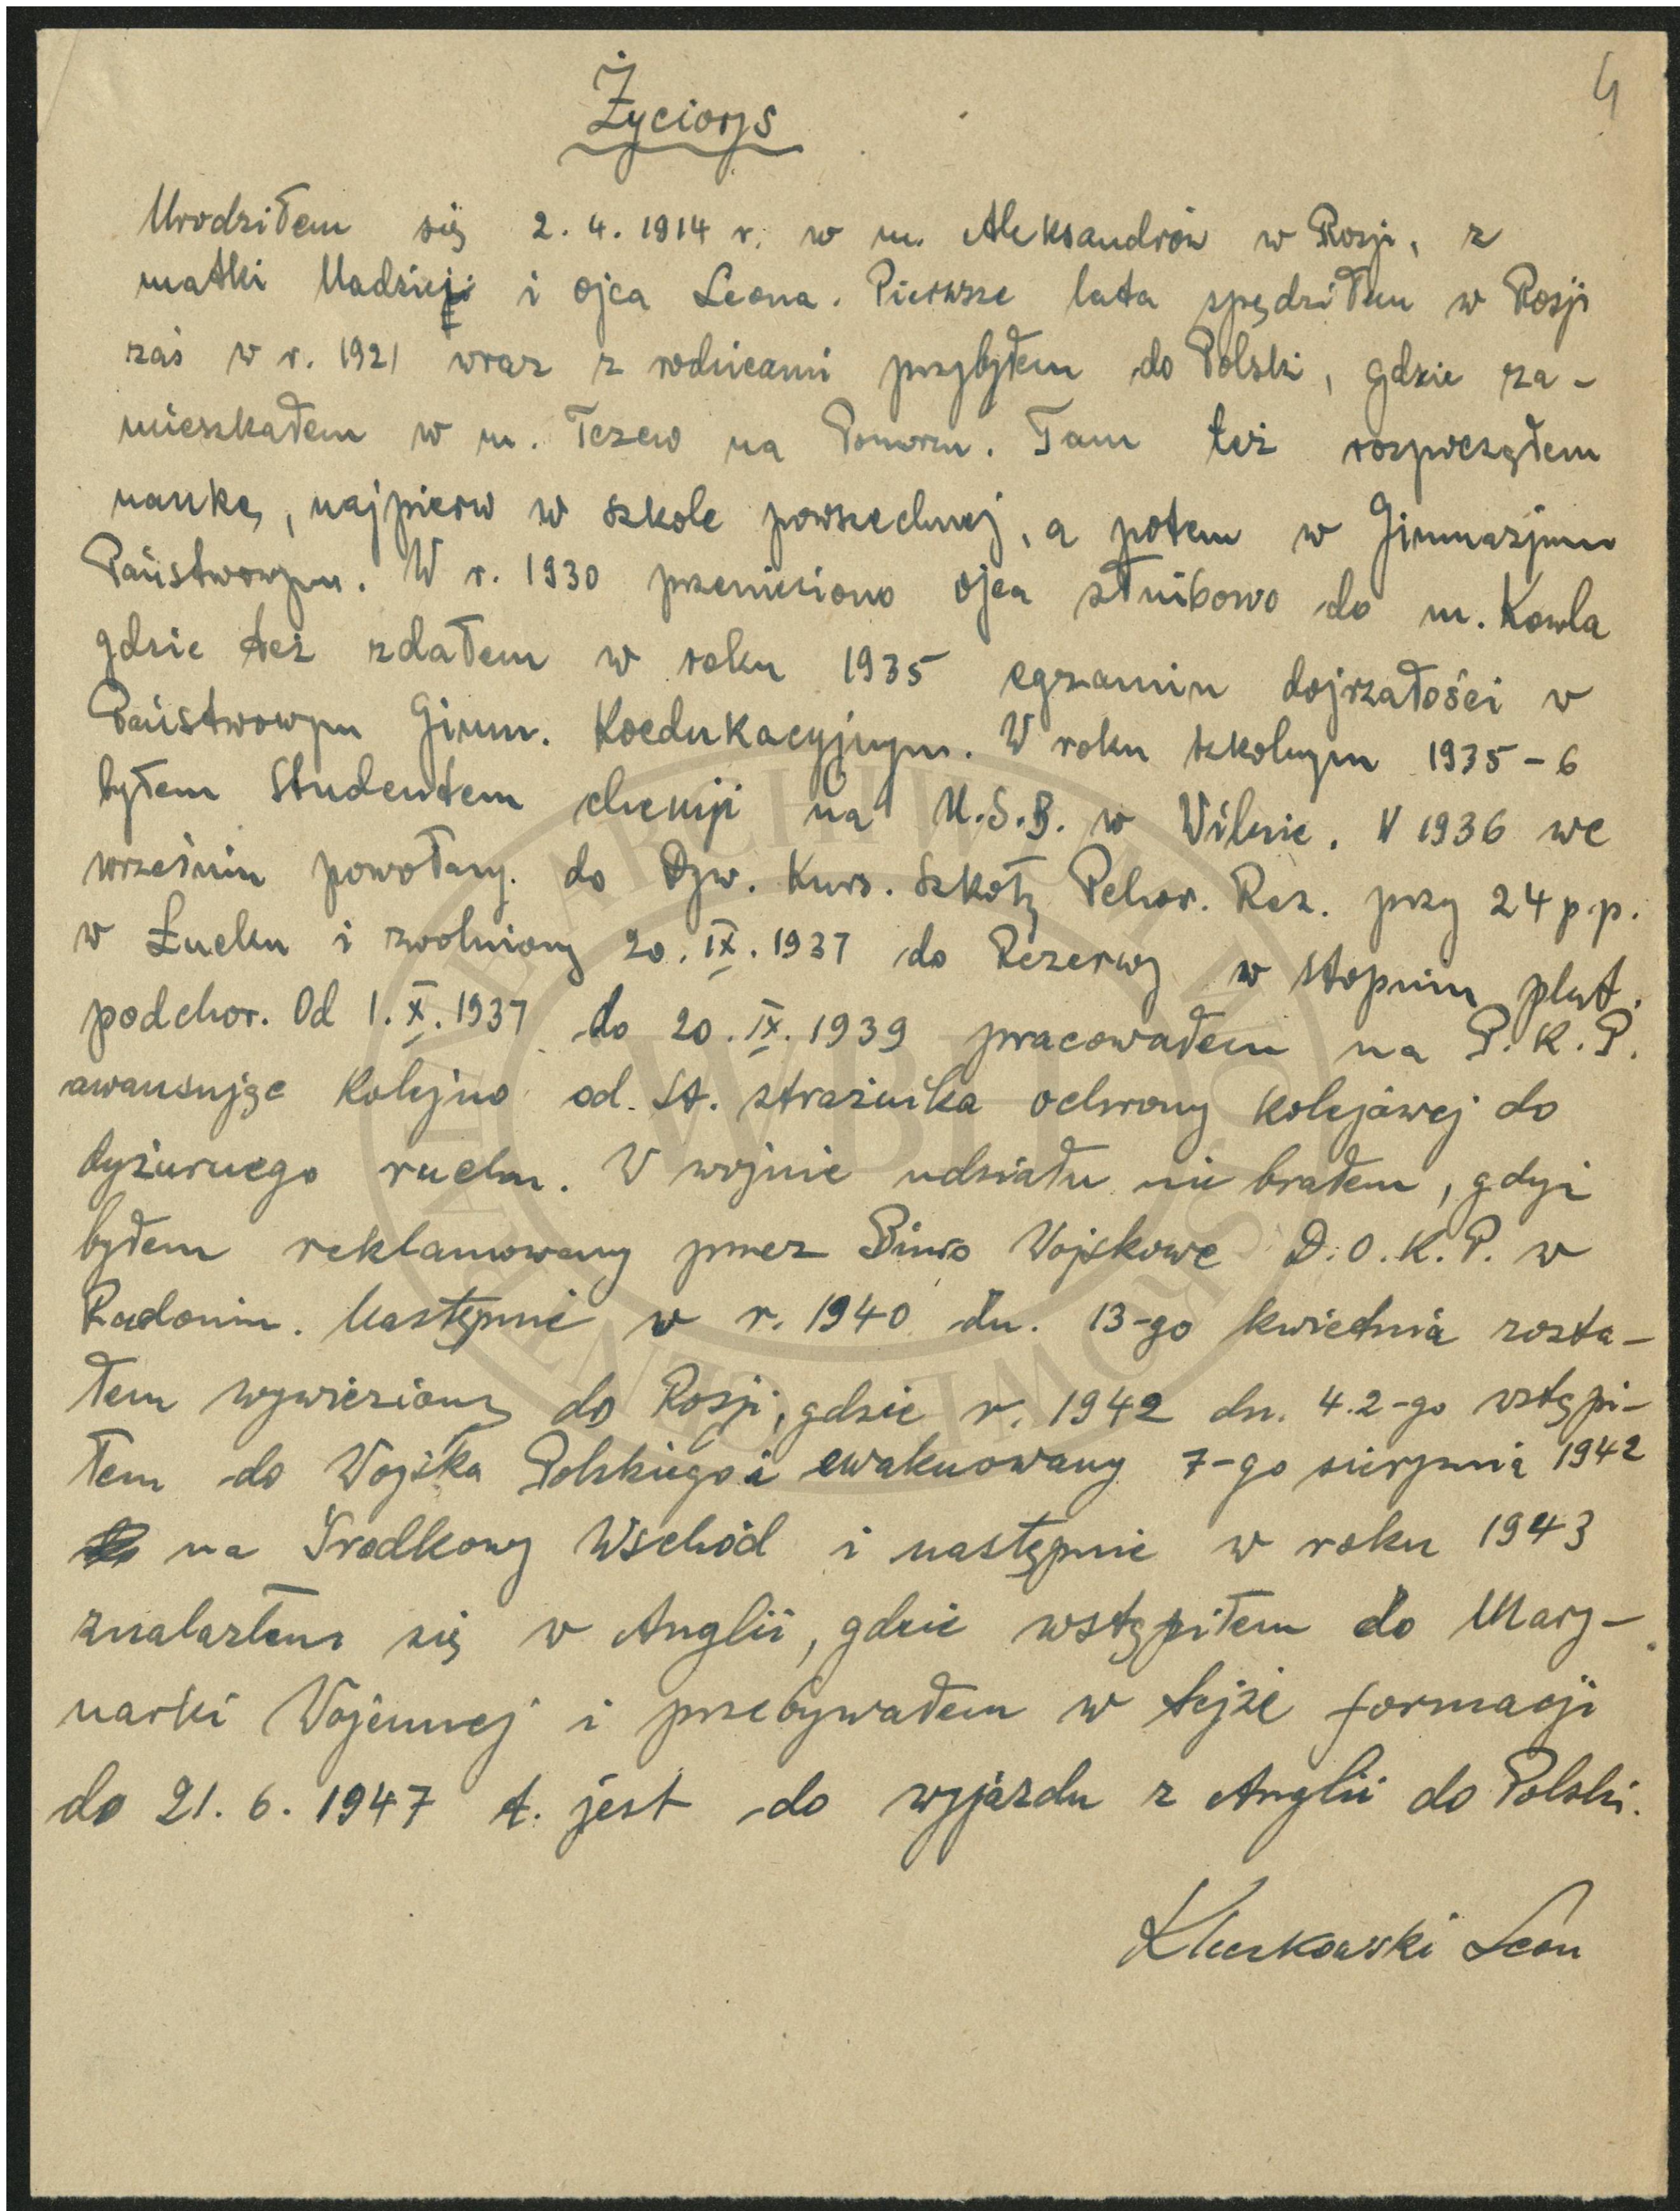 4
Życiorys
Urodziłem się 2. 4. 1914 r. w m. Aleksandrów w Rosji, z
matki Nadzieji i ojca Leona. Pierwsze lata spędziłem w Rosji
zaś w r. 1921 wraz z rodzicami przybyłem do Polski, gdzie za-
mieszkałem w m. Tczew na Pomorzu. Tam też rozpocząłem
naukę, najpierw w szkole powszechnej, a potem w Gimnazjum
Państwowym. W r. 1930 przeniesiono ojca służbowo do m. Kowla
gdzie też zdałem w roku 1935 egzamin dojrzałości w
Państwowym Gimn. Koedukacyjnym. W roku szkolnym 1935-6
byłem studentem chemji na U.S.B. w Wilnie. W 1936 we
wrześniu powołany. do Dyw. Kurs. Szkoły Pchor. Rez. przy 24 p.p.
w Łucku i zwolniony 20. IX. 1937 do Rezerwy w stopniu plut.
podchor. Od 1. X. 1937 do 20. IX. 1939 pracowałem na P.K.P.
awansując kolejno od st. strażnika ochrony kolejowej do
dyżurnego ruchu. W wojnie udziału nie brałem, gdyż
byłem reklamowany przez Biuro Wojskowe D.O.K.P. w
Radomiu. Następnie w r. 1940 dn. 13-go kwietnia zosta-
łem wywieziony do Rosji, gdzie r. 1942 dn. 4.2-go wstąpi-
łem do Wojska Polskiego i ewakuowany 7-go sierpnia 1942
na Środkowy Wschód i następnie w roku 1943
znalazłem się w Anglii, gdzie wstąpiłem do Mary-
narki Wojennej i przebywałem w tejże formacji
do 21. 6. 1947 t. jest do wyjazdu z Anglii do Polski.
Leon